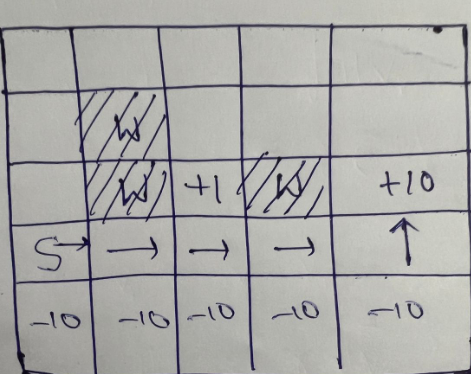 W
W +1 W +10
S→ → → → ↑
-10 -10 -10 -10 -10